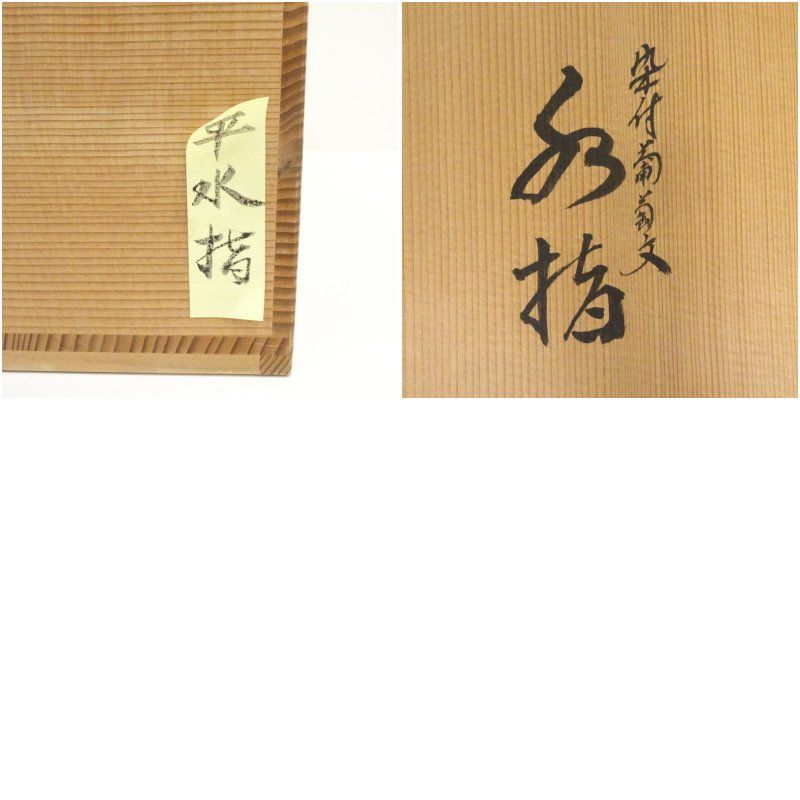 平水指
染付葡萄文
水指